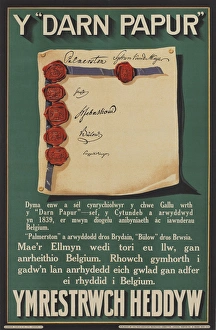 Y "DARN PAPUR"
Palmerston
Bülow
Dyma enw a sel cynrychiolwyr y chwe Gallu wrth
y "Darn Papur"—sef, y Cytundeb a arwyddwyd
yn 1839, er mwyn diogelu anibyniaeth ac iawnderau
Belgium.
"Palmerston" a arwyddodd dros Brydain, "Bülow" dros Brwsia.
Mae'r Ellmyn wedi tori eu llw, gan
anrheithio Belgium. Rhowch gymhorth i
gadw'n lan anrhydedd eich gwlad gan adfer
ei rhyddid i Belgium.
YMRESTRWCH HEDDYW